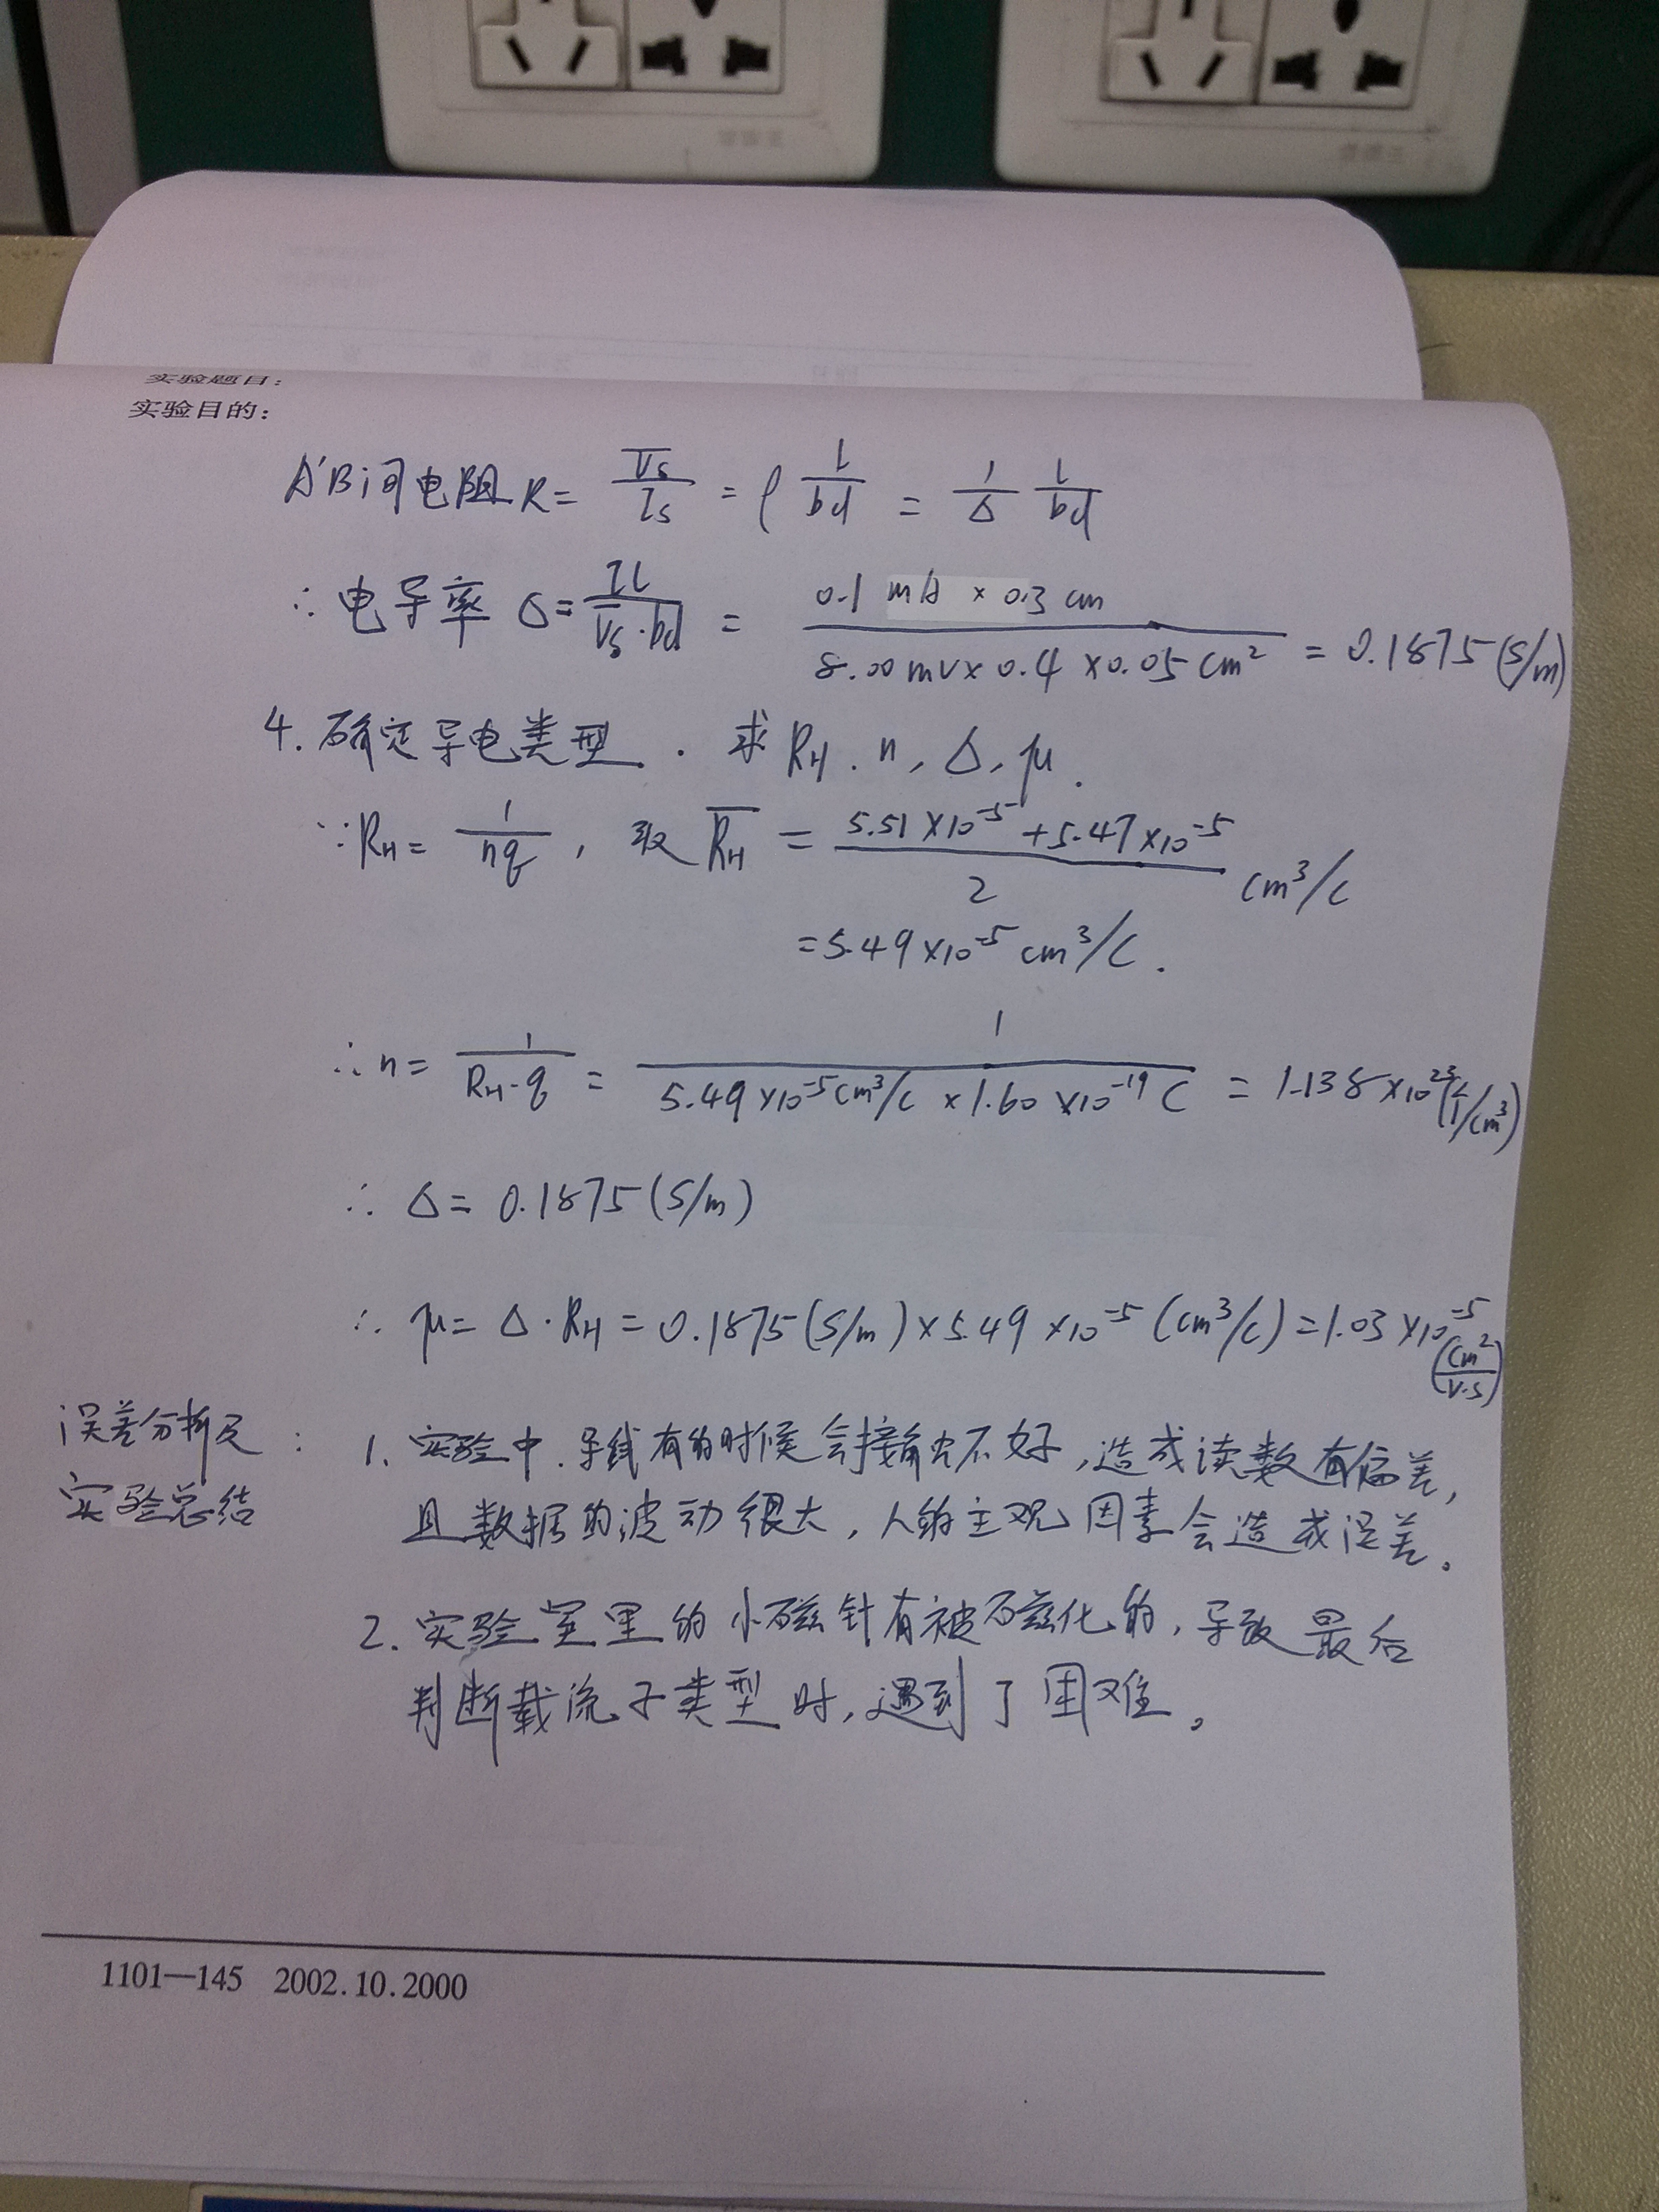 实验题目:
实验目的:
A'B间电阻R= V̅s/Is = ρ l/bd = 1/σ l/bd
∴ 电导率 σ= Il/V̅s·bd = 0.1 mA × 0.3 cm / 8.00mv×0.4×0.05cm² = 0.1875(S/m)
4. 确定导电类型. 求RH. n, σ, μ.
∵RH= 1/nq , 取 R̅H = 5.51×10⁻⁵+5.47×10⁻⁵ / 2 cm³/C
=5.49×10⁻⁵ cm³/C.
∴ n= 1/RH·q = 1 / 5.49×10⁻⁵cm³/C ×1.60×10⁻¹⁹C = 1.138×10²³(1/cm³)
∴ σ= 0.1875(S/m)
∴ μ= σ·RH = 0.1875(S/m)×5.49×10⁻⁵(cm³/C)=1.03×10⁻⁵(cm²/V·S)
误差分析及
实验总结
: 1. 实验中.导线有的时候会接触不好,造成读数有偏差,
且数据的波动很大,人的主观因素会造成误差。
2. 实验室里的小磁针有被磁化的,导致最后
判断载流子类型时,遇到了困难。
1101—145 2002.10.2000